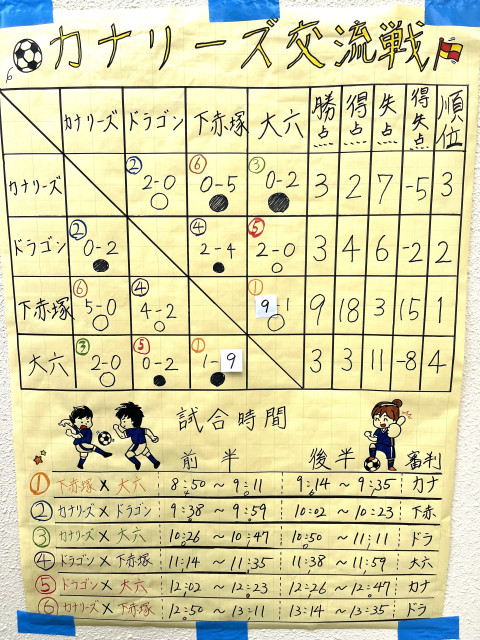 カナリーズ交流戦
カナリーズ ドラゴン 下赤塚 大六 勝点 得点 失点 得失点 順位
カナリーズ ② 2-0 ○ ⑥ 0-5 ● ③ 0-2 ● 3 2 7 -5 3
ドラゴン ② 0-2 ● ④ 2-4 ● ⑤ 2-0 ○ 3 4 6 -2 2
下赤塚 ⑥ 5-0 ○ ④ 4-2 ○ ① 9-1 ○ 9 18 3 15 1
大六 ③ 2-0 ○ ⑤ 0-2 ● ① 1-9 ● 3 3 11 -8 4
試合時間
前半 後半 審判
① 下赤塚×大六 8:50～9:11 9:14～9:35 カナ
② カナリーズ×ドラゴン 9:38～9:59 10:02～10:23 下赤
③ カナリーズ×大六 10:26～10:47 10:50～11:11 ドラ
④ ドラゴン×下赤塚 11:14～11:35 11:38～11:59 大六
⑤ ドラゴン×大六 12:02～12:23 12:26～12:47 カナ
⑥ カナリーズ×下赤塚 12:50～13:11 13:14～13:35 ドラ